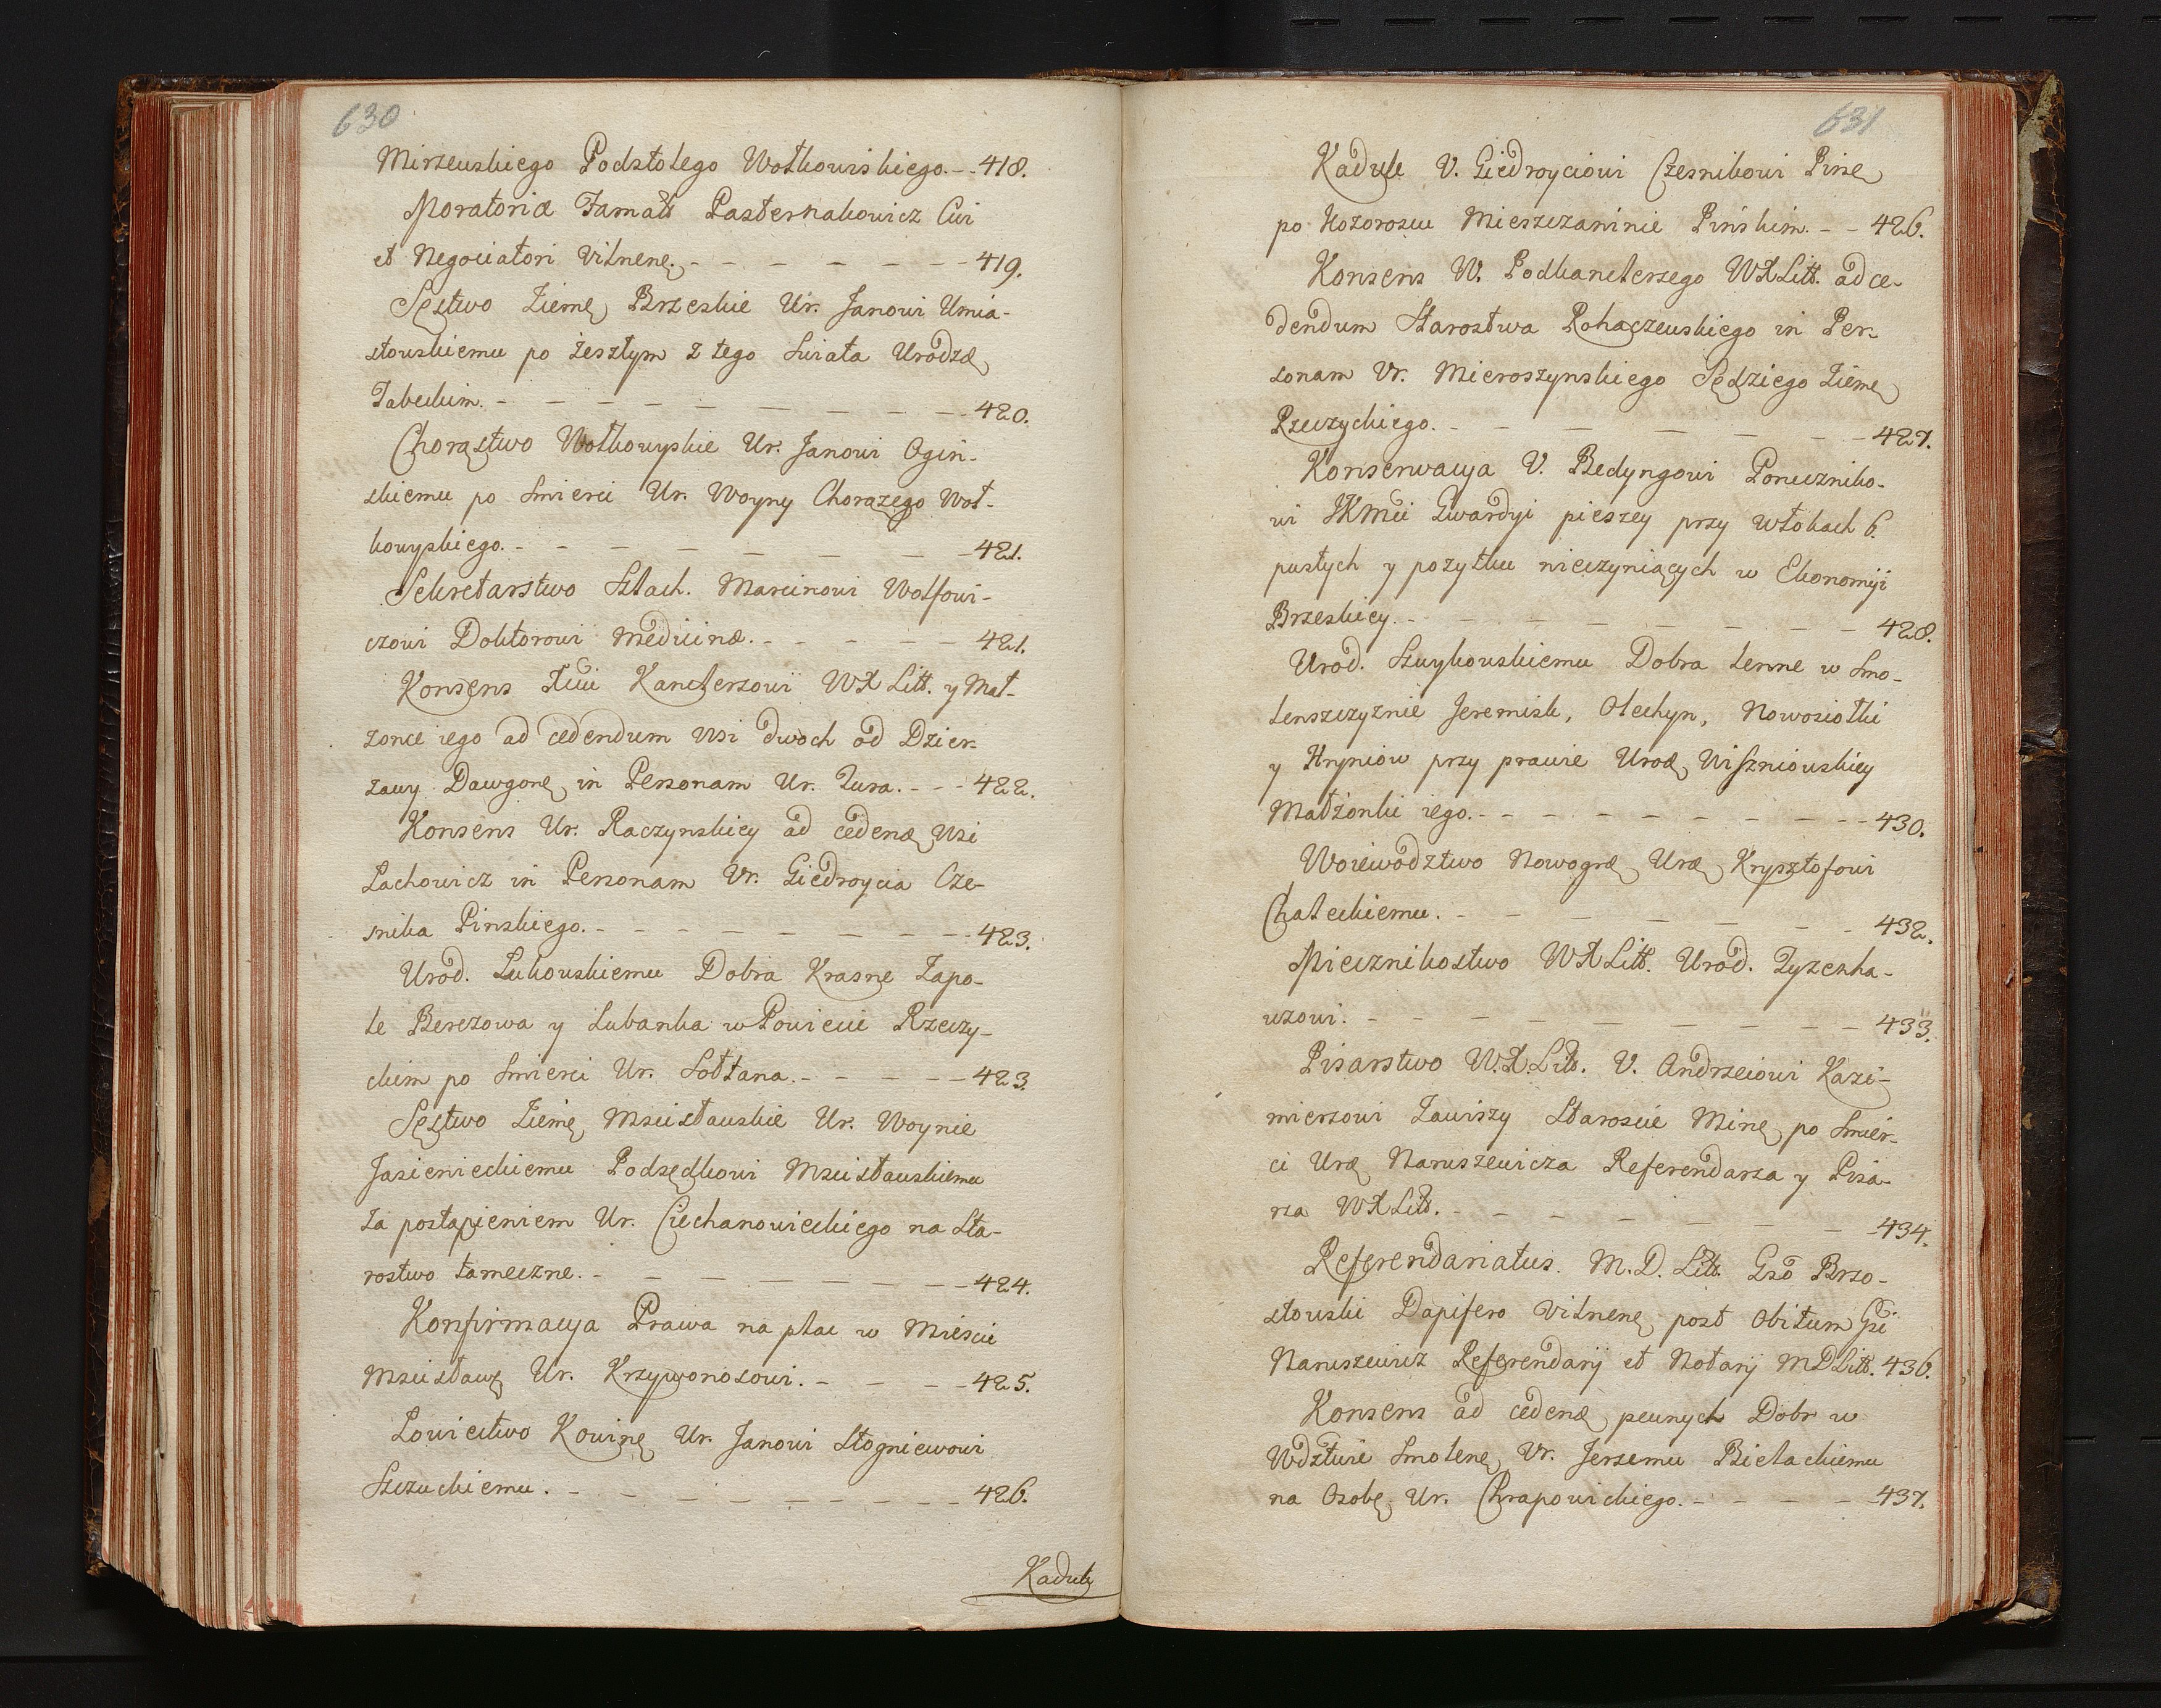 630
Mirzeuskiego Podstolego Wołkowiskiego. - - 418.
Moratoriæ Famato Pasternakowicz Civi
et Negociatori Vilnens. - - - - - - 419.
Sęstwo Ziems. Brzeskie Ur. Janowi Umia-
stowskiemu po zeszłym z tego Swiata Urodz.
Zabeckim. - - - - - - - - - - 420.
Chorąstwo Wołkowyskie Ur. Janowi Ogiń-
skiemu po Smierci Ur. Woyny Chorązego Woł-
kowyskiego. - - - - - - - - 421.
Sekretarstwo Szlach. Marcinowi Wolfowi-
czowi Doktorowi Medicinæ. - - - - - 421.
Konsens Kanclerzowi WXLitt. y Mał-
zonce iego ad cedendum Wsi dwoch od Dzier-
zawy Dawgone, in Personam Ur. Zura. - - - 422.
Konsens Ur. Raczynskiey ad ceden. Wsi
Lachowicz in Personam Ur. Giedroycia Cze-
snika Pinskiego. - - - - - - - - 423.
Urod. Lukowskiemu Dobra Krasne Zapo-
le Berezowa y Lubanka w Powiecie Rzeczy-
ckim po Smierci Ur. Sołtana. - - - - - 423.
Sęstwo Ziems. Mscisławskie Ur. Woynie
Jasienieckiemu Podsędkowi Mscisławskiemu
za postąpieniem Ur. Ciechanowieckiego na Sta-
rostwo tameczne. - - - - - - - - 424.
Konfirmacya Prawa na plac w Miescie
Mscisławs. Ur. Krzywonosowi. - - - - 425.
Łowiectwo Kowins. Ur. Janowi Stogniewowi
Szczuckiemu. - - - - - - - - - 426.
Kaduk
631
Kaduk V. Giedroyciowi Czesnikowi Pins.
po Kozoroscu Mieszczaninie Pińskim. - - 426.
Konsens W. Podkanclerzego WXLitt. ad ce-
dendum Starostwa Rohaczewskiego in Per-
sonam Vr. Mieroszynskiego Sędziego Ziems.
Rzeczyckiego. - - - - - - - 427.
Konserwacya V. Bedyngowi Poruczniko-
wi JKMci Gwardyi pieszey przy włokach 6.
pustych y pozytku nieczyniących w Ekonomyi
Brzeskiey. - - - - - - - - - 428.
Urod. Szuykowskiemu Dobra lenne w Smo-
lenszczyznie Jeremisk, Olechyn, Nowosiołki
y Hryniow przy prawie Urod. Wiszniowskiey
Małżonki iego. - - - - - - - - - 430.
Woiewodztwo Nowogr. Ur. Krysztofowi
Chaleckiemu. - - - - - - - 432.
Miecznikostwo WXLitt. Urod. Tyzenha-
uzowi. - - - - - - - - - - 433.
Pisarstwo W.X.Litt. V. Andrzeiowi Kazi-
mierzowi Zawiszy Staroscie Mins. po Smier-
ci Ur. Naruszewicza Referendarza y Pisa-
rza WXLitt. - - - - - - - - 434.
Referendariatus. M.D. Litt. Gso Brzo-
stouski Dapifero Vilnens. post Obitum Gsi
Naruszewicz Referendarij et Notarij MDLitt. 436.
Konsens ad ceden. pewnych Dobr w
Wdztwie Smolens. Vr. Jerzemu Bielackiemu
na Osobę Ur. Chrapowickiego. - - - - - 437.